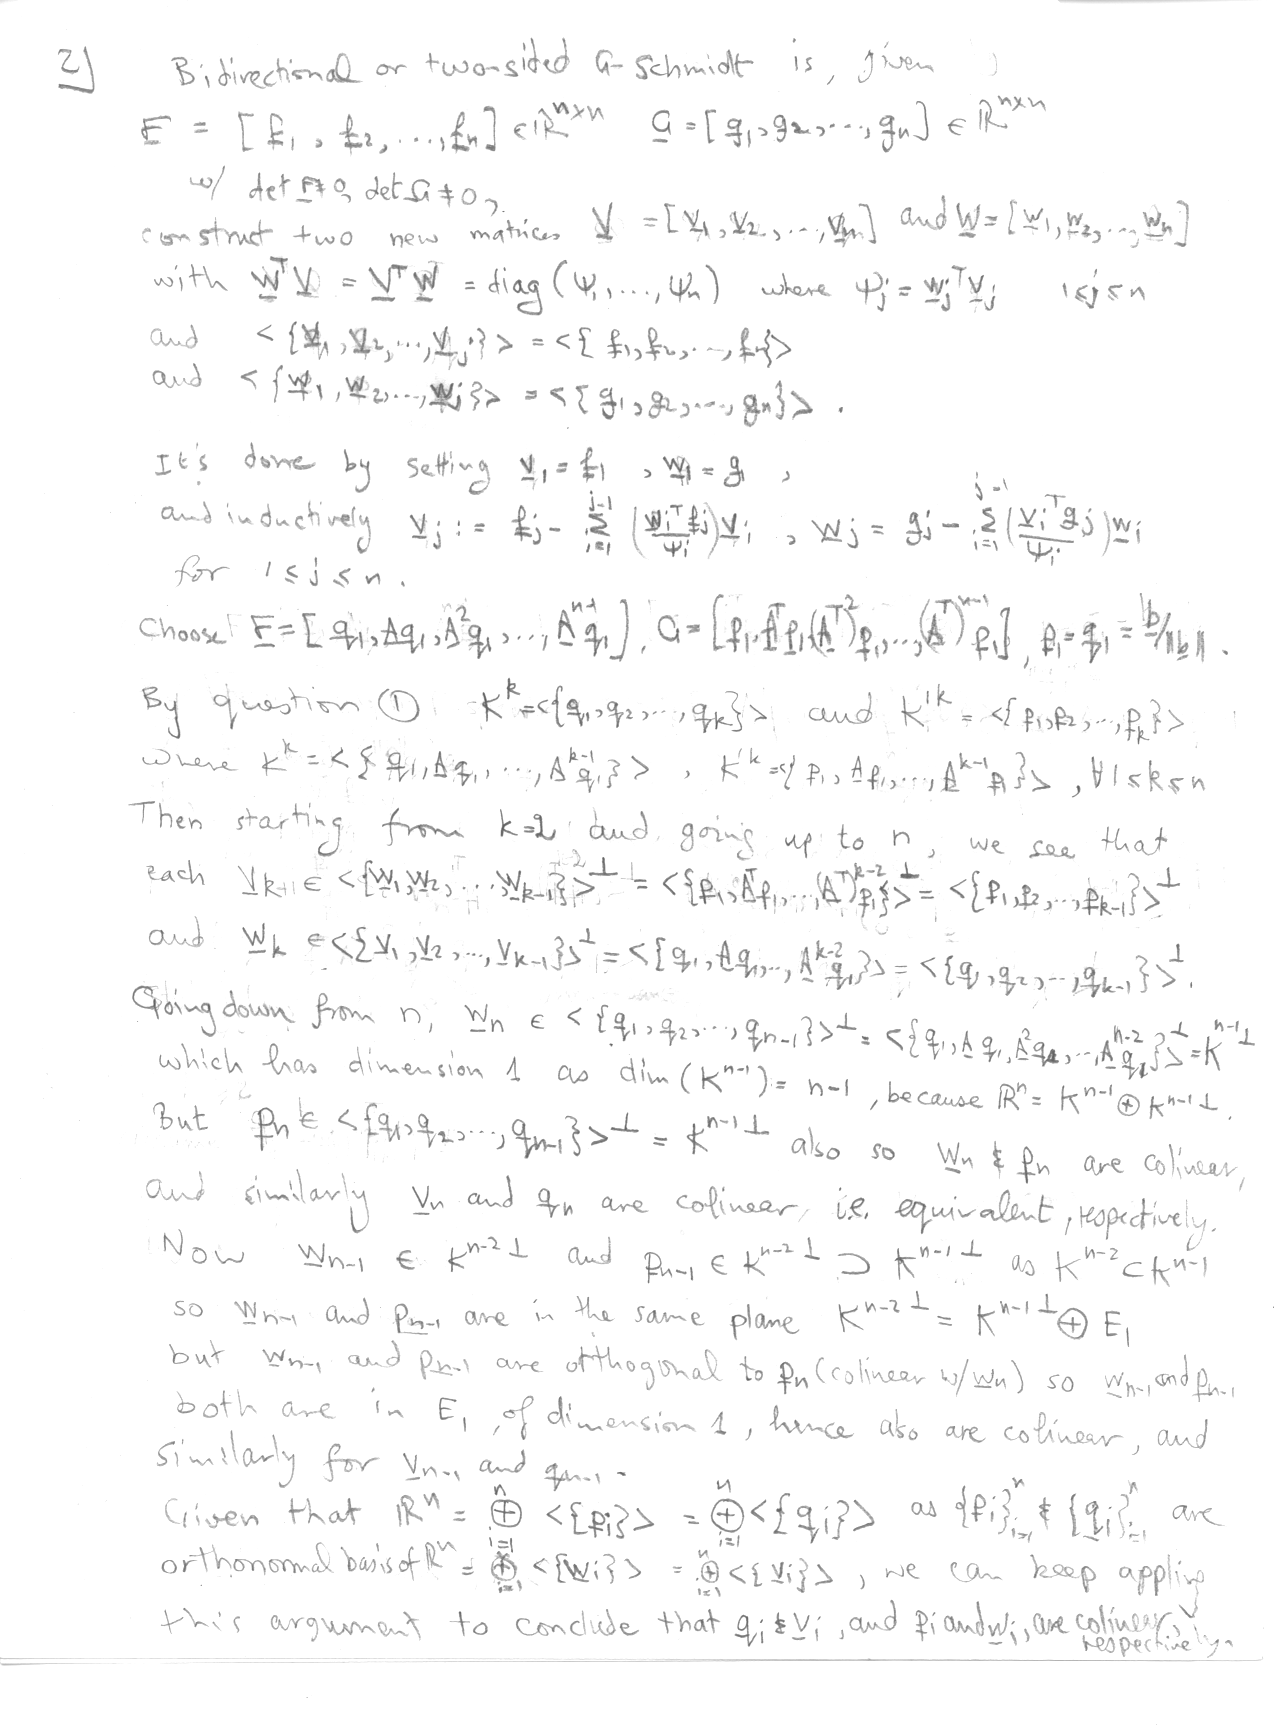 2) Bidirectional or two-sided G-Schmidt is, given
F = [f₁, f₂, ..., fₙ] ∈ ℝⁿˣⁿ G = [g₁, g₂, ..., gₙ] ∈ ℝⁿˣⁿ
w/ det F ≠ 0, det G ≠ 0,
construct two new matrices V = [v₁, v₂, ..., vₙ] and W = [w₁, w₂, ..., wₙ]
with WᵀV = VᵀW = diag (ψ₁, ..., ψₙ) where ψⱼ = wⱼᵀvⱼ 1≤j≤n
and <{v₁, v₂, ..., vⱼ}> = <{f₁, f₂, ..., fⱼ}>
and <{w₁, w₂, ..., wⱼ}> = <{g₁, g₂, ..., gₙ}>.
It's done by setting v₁ = f₁, w₁ = g₁,
and inductively vⱼ := fⱼ - Σ_{i=1}^{j-1} (wᵢᵀfⱼ/ψᵢ)vᵢ, wⱼ = gⱼ - Σ_{i=1}^{j-1} (vᵢᵀgⱼ/ψᵢ)wᵢ
for 1≤j≤n.
Choose F = [q₁, Aq₁, A²q₁, ..., Aⁿ⁻¹q₁], G = [p₁, Aᵀp₁, (Aᵀ)²p₁, ..., (Aᵀ)ⁿ⁻¹p₁], p₁ = q₁ = b/‖b‖.
By question ① Kᵏ = <{q₁, q₂, ..., qₖ}> and K'ᵏ = <{p₁, p₂, ..., pₖ}>
where Kᵏ = <{q₁, Aq₁, ..., Aᵏ⁻¹q₁}>, K'ᵏ = <{p₁, Ap₁, ..., Aᵏ⁻¹p₁}>, ∀1≤k≤n
Then starting from k=2 and going up to n, we see that
each vₖ₊₁ ∈ <{w₁, w₂, ..., wₖ₋₁}>⊥ = <{p₁, Aᵀp₁, ..., (Aᵀ)ᵏ⁻²p₁}>⊥ = <{p₁, p₂, ..., pₖ₋₁}>⊥
and wₖ ∈ <{v₁, v₂, ..., vₖ₋₁}>⊥ = <{q₁, Aq₁, ..., Aᵏ⁻²q₁}> = <{q₁, q₂, ..., qₖ₋₁}>⊥.
Going down from n, wₙ ∈ <{q₁, q₂, ..., qₙ₋₁}>⊥ = <{q₁, Aq₁, A²q₁, ..., Aⁿ⁻²q₁}>⊥ = Kⁿ⁻¹⊥
which has dimension 1 as dim(Kⁿ⁻¹) = n-1, because ℝⁿ = Kⁿ⁻¹ ⊕ Kⁿ⁻¹⊥.
But pₙ ∈ <{q₁, q₂, ..., qₙ₋₁}>⊥ = Kⁿ⁻¹⊥ also so wₙ & pₙ are colinear,
and similarly vₙ and qₙ are colinear, i.e. equivalent, respectively.
Now wₙ₋₁ ∈ Kⁿ⁻²⊥ and pₙ₋₁ ∈ Kⁿ⁻²⊥ ⊃ Kⁿ⁻¹⊥ as Kⁿ⁻² ⊂ Kⁿ⁻¹
so wₙ₋₁ and pₙ₋₁ are in the same plane Kⁿ⁻²⊥ = Kⁿ⁻¹⊥ ⊕ E₁
but wₙ₋₁ and pₙ₋₁ are orthogonal to pₙ (colinear w/ wₙ) so wₙ₋₁ and pₙ₋₁
both are in E₁, of dimension 1, hence also are colinear, and
similarly for vₙ₋₁ and qₙ₋₁.
Given that ℝⁿ = ⊕_{i=1}^n <{pᵢ}> = ⊕_{i=1}^n <{qᵢ}> as {pᵢ}_{i=1}^n & {qᵢ}_{i=1}^n are
orthonormal basis of ℝⁿ = ⊕_{i=1}^n <{wᵢ}> = ⊕_{i=1}^n <{vᵢ}>, we can keep applying
this argument to conclude that qᵢ & vᵢ, and pᵢ and wᵢ, are colinear, respectively.